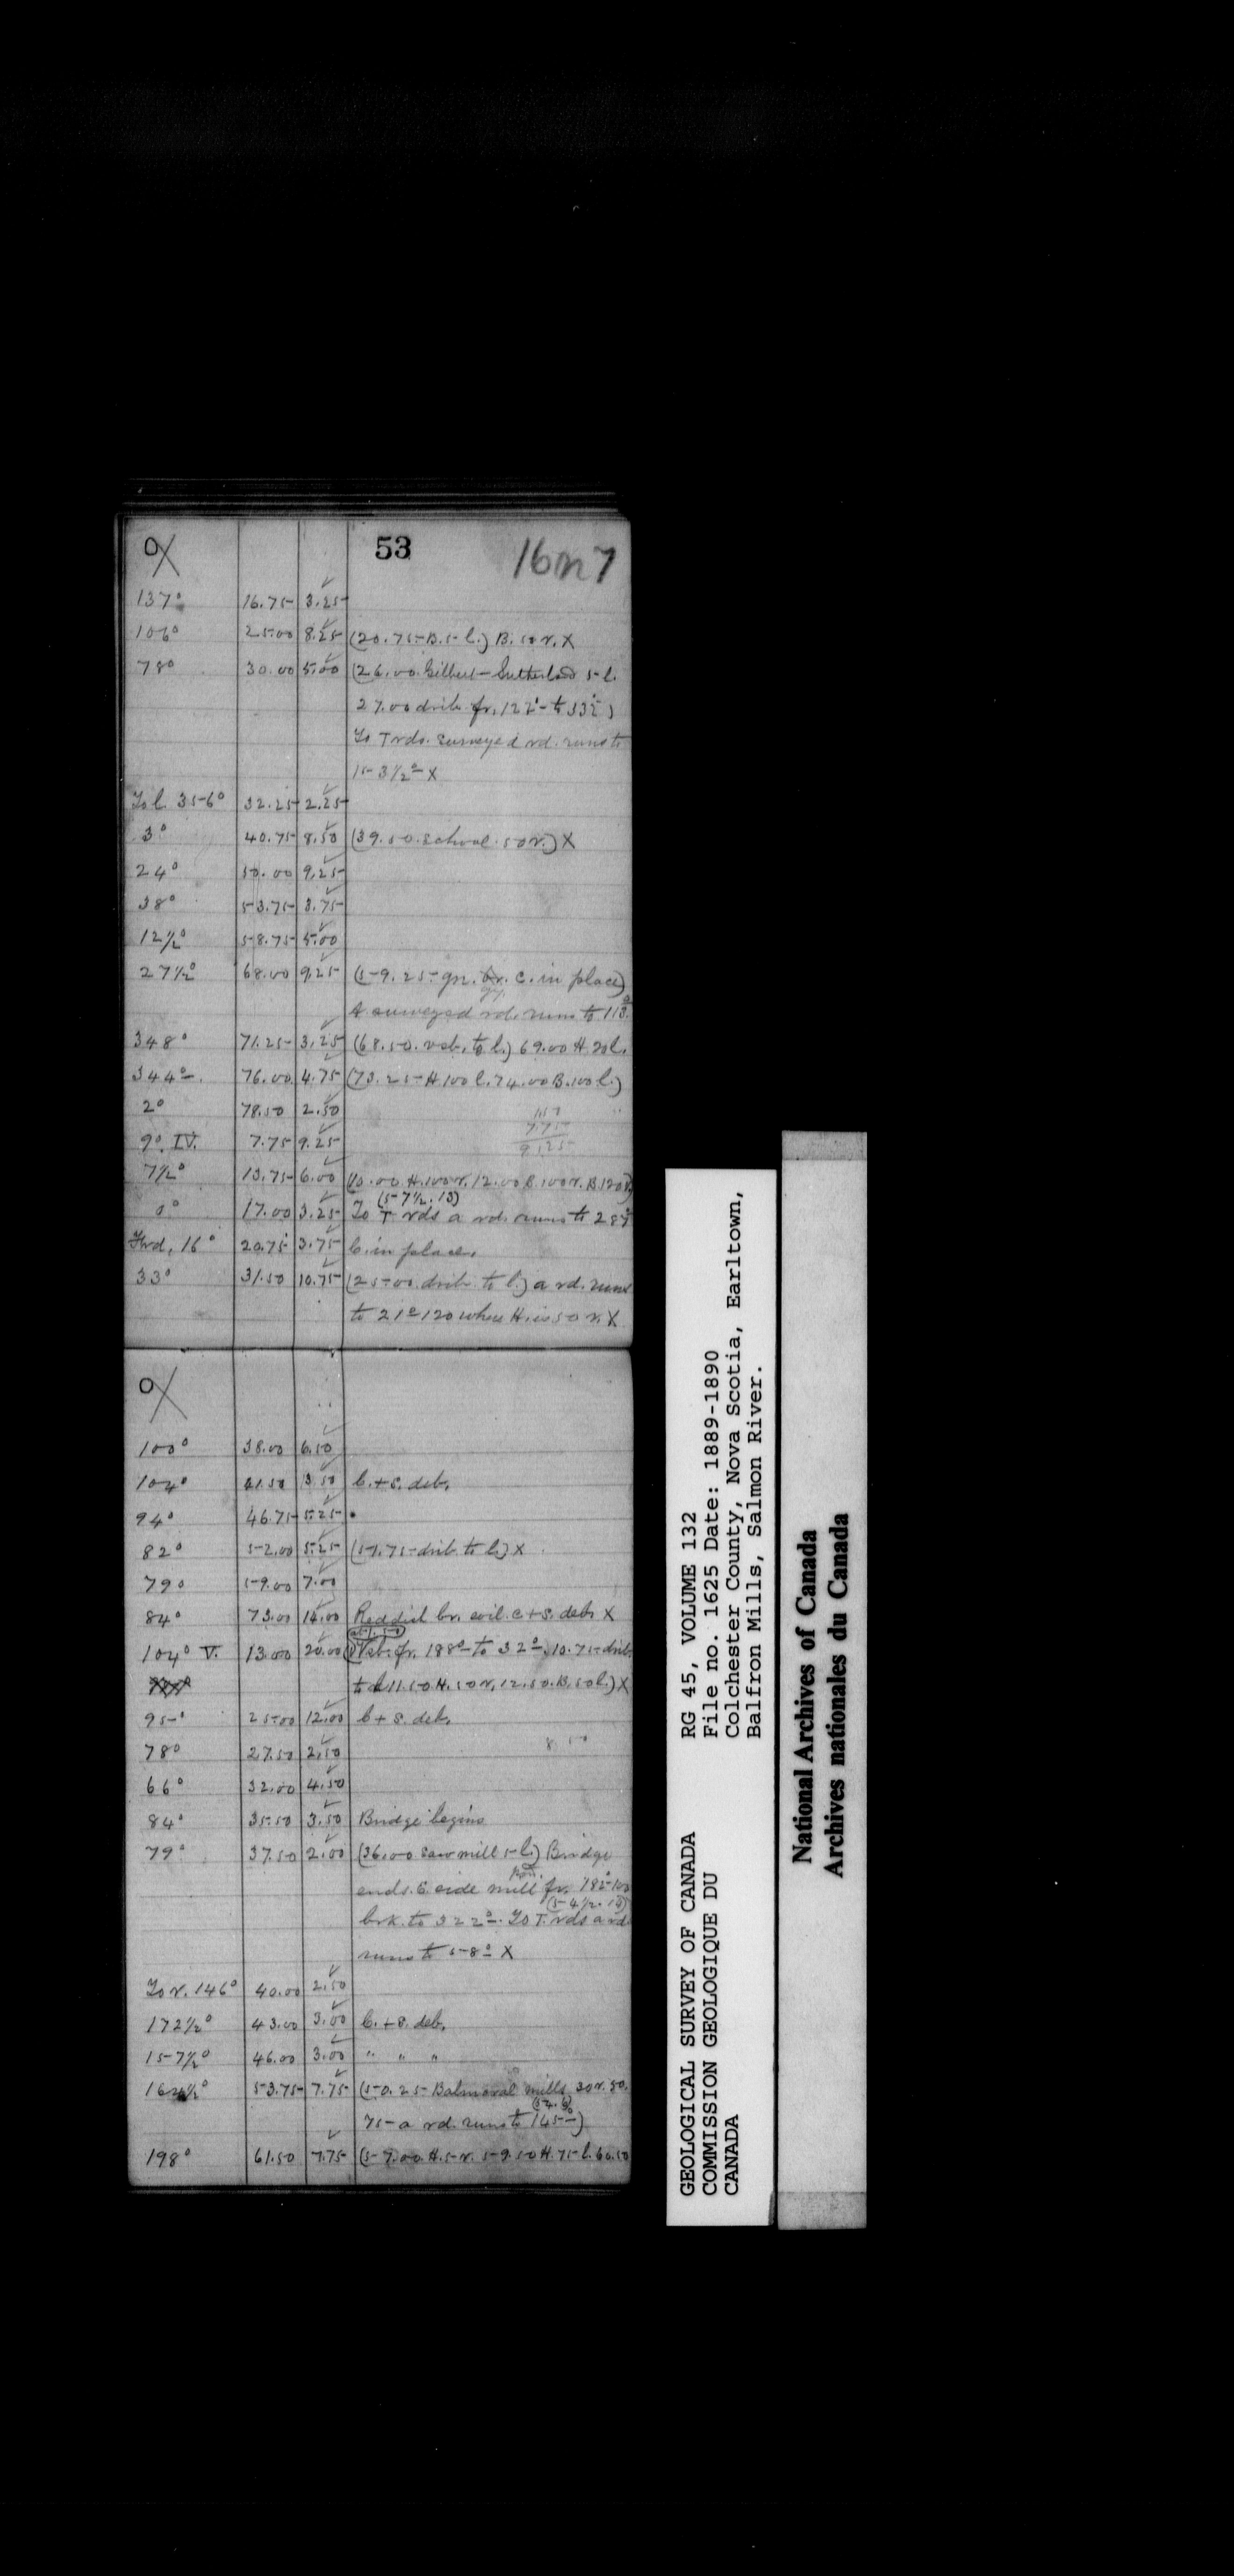 0/X 53 16m7
137° 16.75 3.25
106° 25.00 8.25 (20.75 B. 5 l.) B. 50 r. X
78° 30.00 5.00 (26.00 Gilbert Sutherland 5 l.
27.00 drib. fr. 122° to 332°)
To T rds. surveyed rd. runs to
153½° X
To l. 356° 32.25 2.25
3° 40.75 8.50 (39.50 school 50 r.) X
24° 50.00 9.25
38° 53.75 3.75
12½° 58.75 5.00
27½° 68.00 9.25 (59.25 gn. gy. C. in place)
A surveyed rd. runs to 113°
348° 71.25 3.25 (68.50 to l.) 69.00 H. 20 l.
344° 76.00 4.75 (73.25 H 100 l. 74.00 B. 100 l.)
2° 78.50 2.50
1.50
7.75
9.25
9° IV. 7.75 9.25
7½° 13.75 6.00 (10.00 H. 100 r. 12.00 B. 100 r. B 120 r.)
(57½. 13)
0° 17.00 3.25 To T rds a rd. runs to
Fwd. 16° 20.75 3.75 C. in place.
33° 31.50 10.75 (25.00 drib. to l.) a rd. runs
to 21° 120 where H. is 50 r. X
0/X
100° 38.00 6.50
104° 41.50 3.50 C. + S. deb.
94° 46.75 5.25
82° 52.00 5.25 (51.75 drib. to l.) X
79° 59.00 7.00
84° 73.00 14.00 Reddish br. soil. C + S. deb. X
104° V. 13.00 20.00 fr. 188° to 32°. 10.75 drib.
to l. 11.50 H. 50 r. 12.50 B. 50 l.) X
95° 25.00 12.00 C + S. deb.
78° 27.50 2.50 8.50
66° 32.00 4.50
84° 35.50 3.50 Bridge begins
79° 37.50 2.00 (36.00 Saw mill 5 l.) Bridge
ends. E. side mill pond. fr. 182°
(54½. 13)
brk. to 322°. To T. rds a rd
runs to 58° X
To r. 146° 40.00 2.50
172½° 43.00 3.00 C. + S. deb.
157½° 46.00 3.00 " " "
164½° 53.75 7.75 (50.25 Balmoral mills 30 r. 50.
75 a rd. runs to 145°)
198° 61.50 7.75 (57.00 H. 5 r. 59.50 H. 75 l. 60.50
GEOLOGICAL SURVEY OF CANADA
COMMISSION GEOLOGIQUE DU
CANADA
RG 45, VOLUME 132
File no. 1625 Date: 1889-1890
Colchester County, Nova Scotia, Earltown,
Balfron Mills, Salmon River.
National Archives of Canada
Archives nationales du Canada